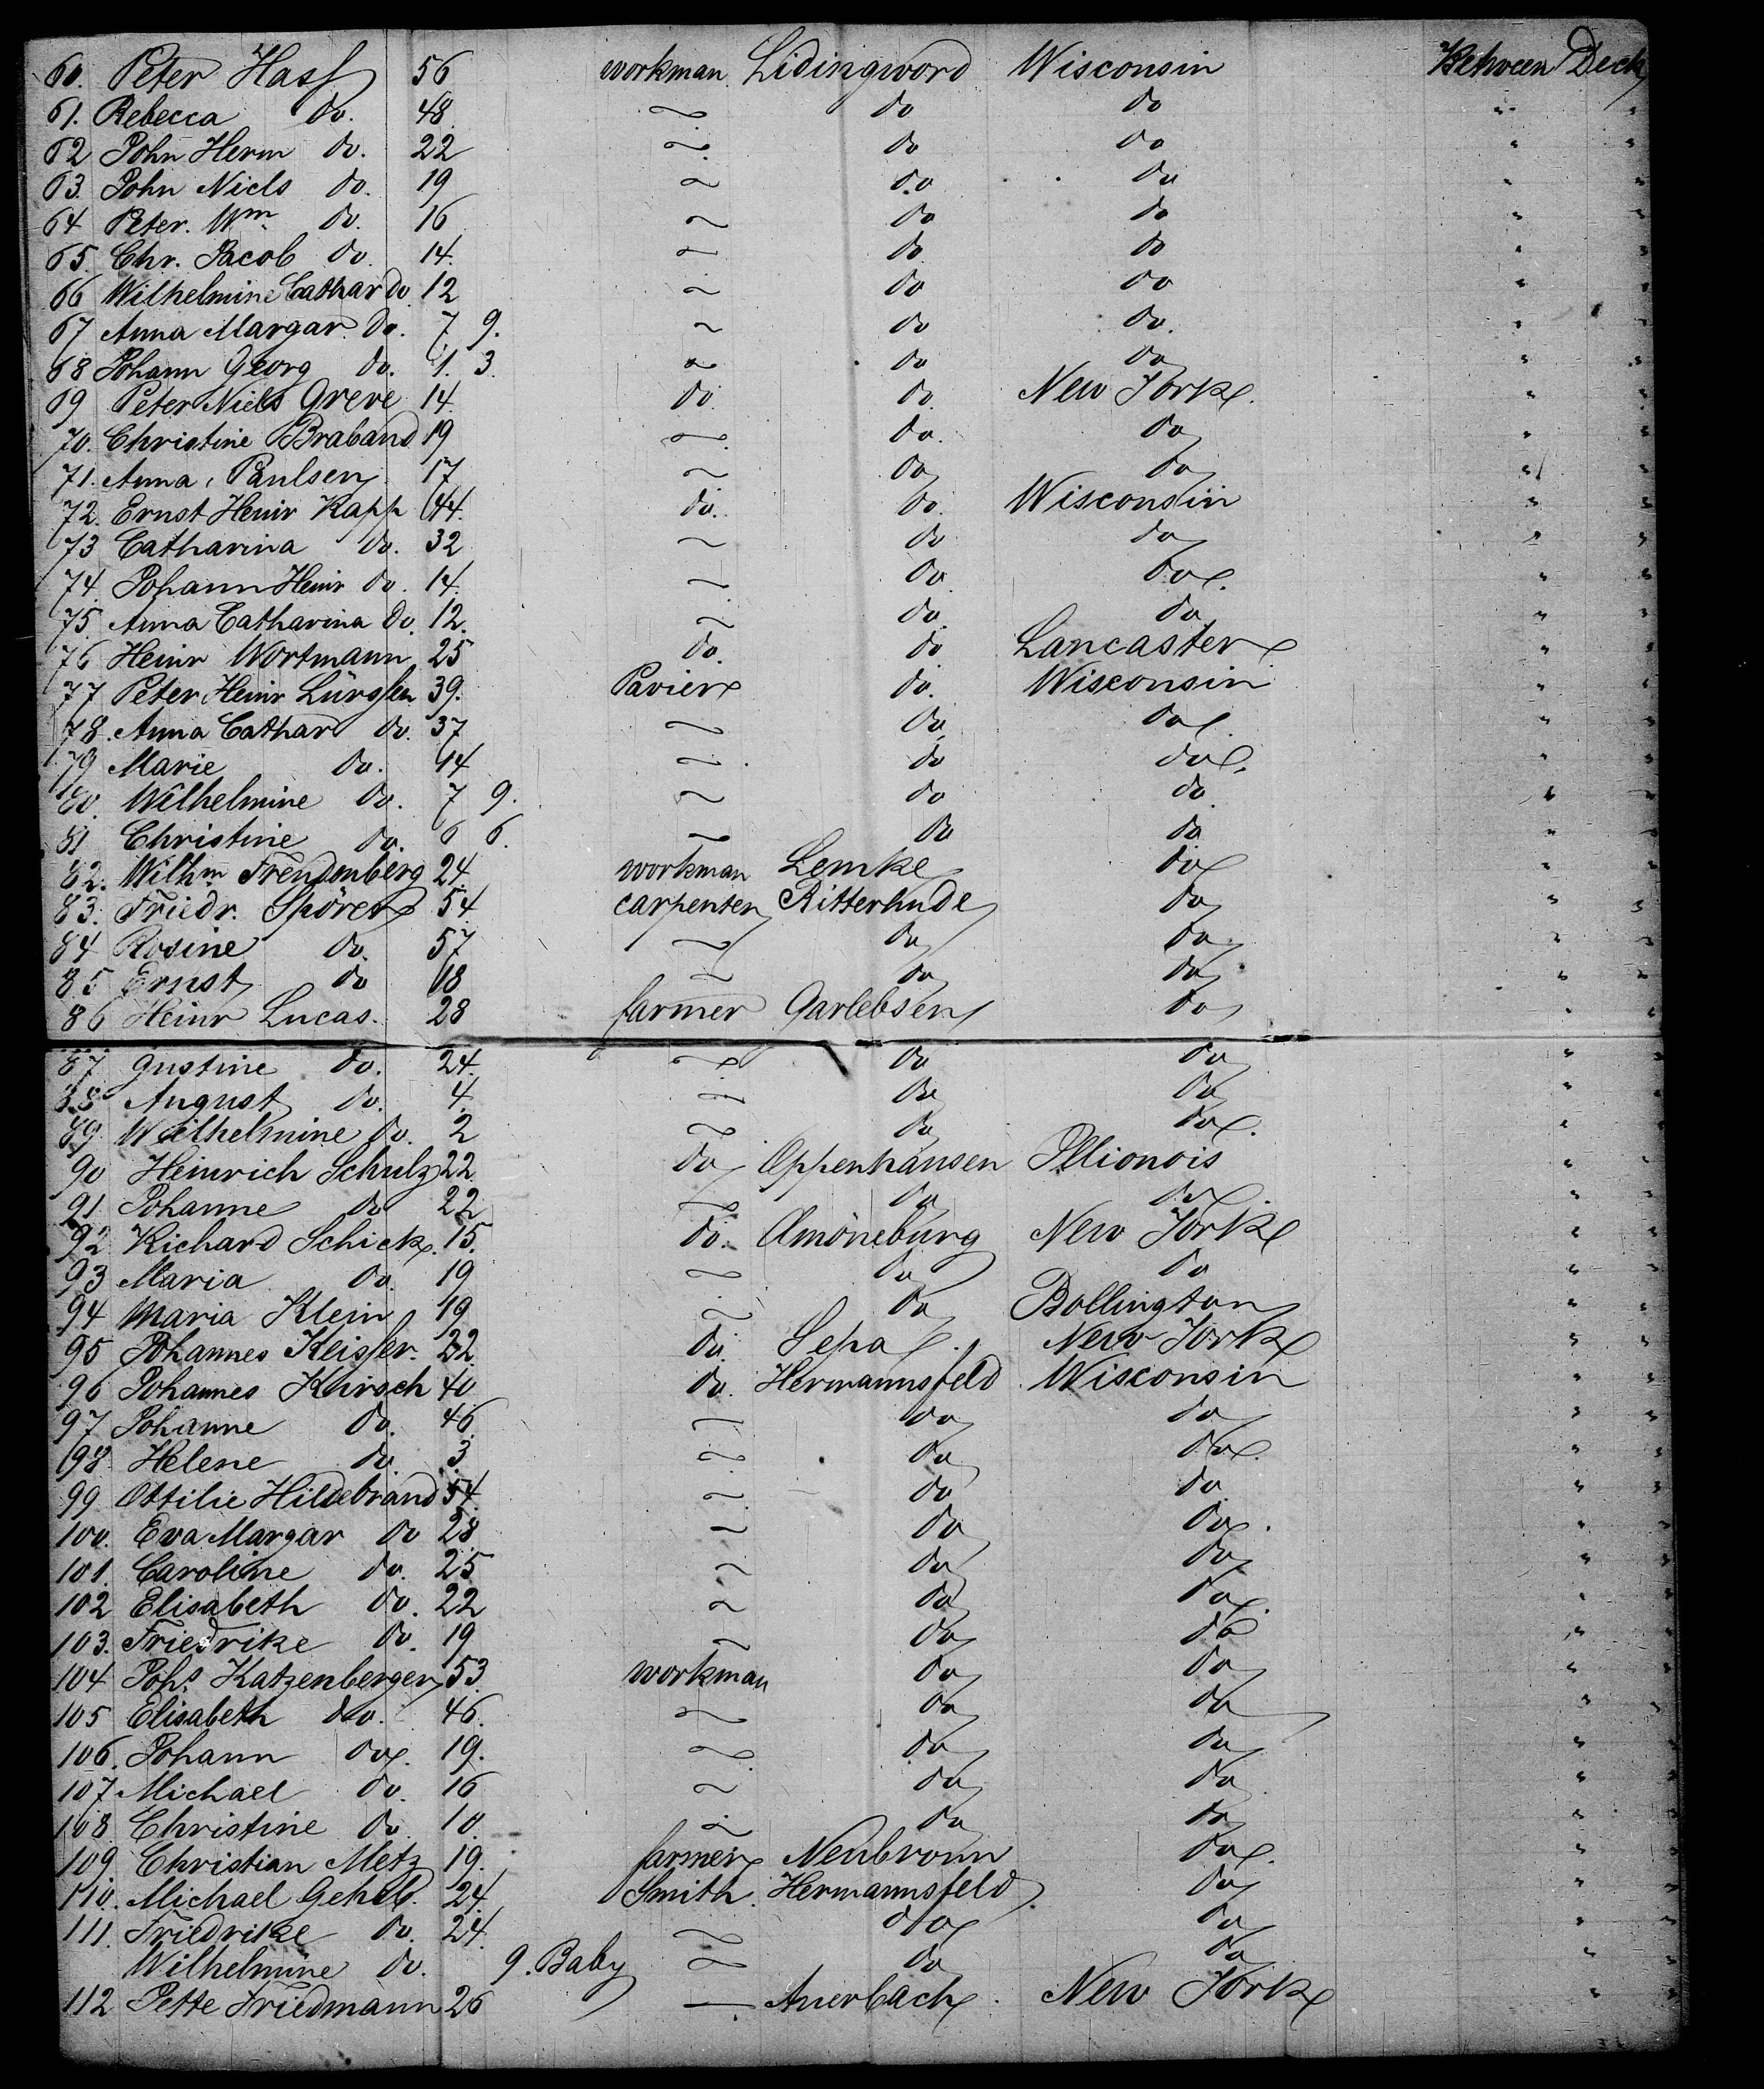 60. Peter Hass 56 workman Lidingword Wisconsin Between Deck
61. Rebecca do. 48 ~ do do " "
62 John Herm do. 22 ~ do do " "
63. John Niels do. 19 ~ do do " "
64 Peter. Wm do. 16 ~ do do " "
65. Chr. Jacob do. 14. ~ do do " "
66 Wilhelmine Cathar do 12 ~ do do " "
67 Anna Margar. do. 7 9. ~ do do. " "
68 Johann Georg do. 1. 3. ~ do do " "
69 Peter Niels Greve 14 do. do. New York. " "
70. Christine Braband 19 ~ do. do " "
71. Anna Paulsen 17 ~ do do " "
72. Ernst Heinr Kapp 44. do. do. Wisconsin " "
73 Catharina do. 32 ~ do do " "
74. Johann Heinr do. 14. ~ do. do. " "
75. Anna Catharina do. 12. ~ do. do " "
76 Heinr Wortmann 25 do. do Lancaster " "
77 Peter Heinr Lürssen 39. Pavier do. Wisconsin " "
78. Anna Cathar do. 37 ~ do do. " "
79 Marie do. 14 ~ do do. " "
80. Wilhelmine do. 7 9. ~ do do. " "
81 Christine do. 6 6. ~ do do " "
82. Wilhm Freudenberg 24. workman Lemke do " "
83. Friedr. Spörer 54 carpenter Ritterhude do " "
84 Rosine do. 57 ~ do do " "
85 Ernst do 18 ~ do do " "
86 Heinr Lucas. 28 farmer Garlebsen do " "
87 Gustine do. 24. ~ do do " "
88 August do. 4. ~ do do " "
89. Wilhelmine do. 2 ~ do do. " "
90 Heinrich Schulz 22 do Oppenhausen Illionois " "
91 Johanne do 22 ~ do do. " "
92 Richard Schick. 15. do. Amöneburg New York " "
93 Maria do. 19 ~ do do " "
94 Maria Klein 19 ~ do Bollington " "
95 Johannes Keisser. 22. do. Sepa. New York " "
96 Johannes Khirsch 40 do. Hermannsfeld Wisconsin " "
97 Johanne do. 46 ~ do do " "
98. Helene do. 3 ~ do do. " "
99 Ottilie Hildebrand 54. ~ do do. " "
100. Eva Margar do 28. ~ do do. " "
101. Caroline do. 25 ~ do do " "
102 Elisabeth do. 22 ~ do do. " "
103. Friedrike do. 19 ~ do do " "
104 Johs Katzenberger 53. workman do do " "
105 Elisabeth do. 46. ~ do do " "
106. Johann do. 19. ~ do do " "
107 Michael do. 16 ~ do do " "
108 Christine do. 10. ~ do do " "
109 Christian Metz 19. farmer Neubronn do. " "
110. Michael Gehrb. 24. Smith. Hermannsfeld. do " "
111. Friedrike do. 24. ~ do do " "
Wilhelmine do. 9. Baby ~ do do " "
112 Jette Friedmann 26 — Auerbach. New York " "